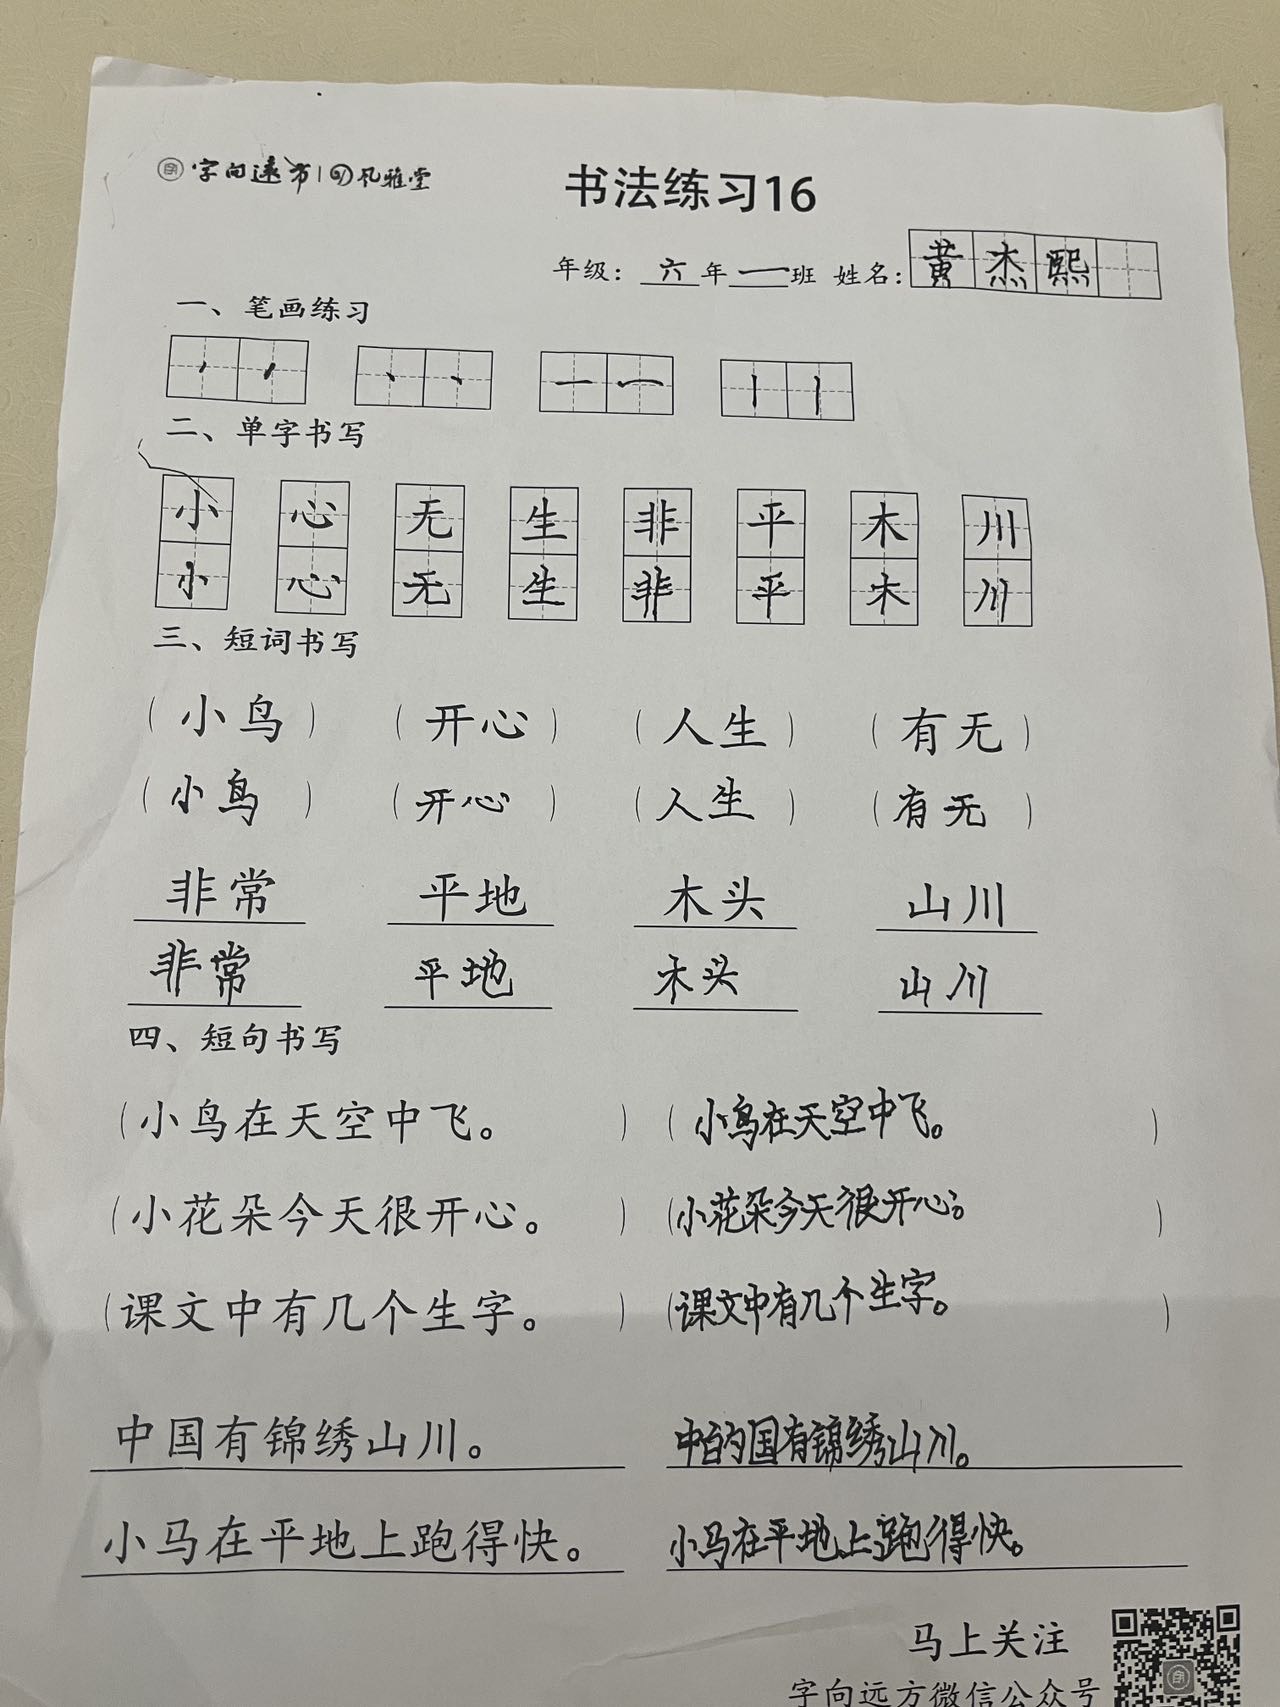 字向远方 风雅堂
书法练习16
年级：六年一班 姓名：黄杰熙
一、笔画练习
二、单字书写
小 心 无 生 非 平 木 川
小 心 无 生 非 平 木 川
三、短词书写
（小鸟）（开心）（人生）（有无）
（小鸟）（开心）（人生）（有无）
非常 平地 木头 山川
非常 平地 木头 山川
四、短句书写
（小鸟在天空中飞。）（小鸟在天空中飞。）
（小花朵今天很开心。）（小花朵今天很开心。）
（课文中有几个生字。）（课文中有几个生字。）
中国有锦绣山川。 中的国有锦绣山川。
小马在平地上跑得快。 小马在平地上跑得快。
马上关注
字向远方微信公众号